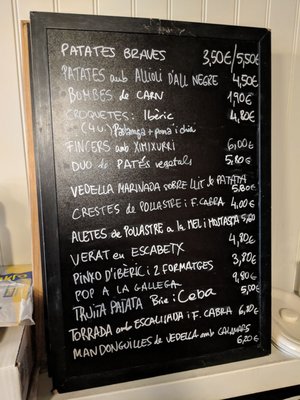 PATATES BRAVES 3,50€/5,50€
PATATES amb ALLIOLI D'ALL NEGRE 4,50€
BOMBES de CARN 1,90€
CROQUETES: Ibèric 4,80€
(4u.) Palanga + poma i chia
FINGERS amb XIMIXURRI 6,00€
DUO de PATÉS vegetals 5,80€
VEDELLA MARINADA SOBRE LLIT de PATATA 5,80€
CRESTES de POLLASTRE i F. CABRA 4,00€
ALETES de POLLASTRE a la MEL i MOSTASSA 5,60
VERAT en ESCABETX 4,80€
PINXO D'IBÈRIC i 2 FORMATGES 3,80€
POP A LA GALLEGA 9,80€
TRUITA PATATA Brie i Ceba 5,00€
TORRADA amb ESCALIVADA i F. CABRA 6,80€
MANDONGUILLES de VEDELLA amb CALAMARS
6,20€